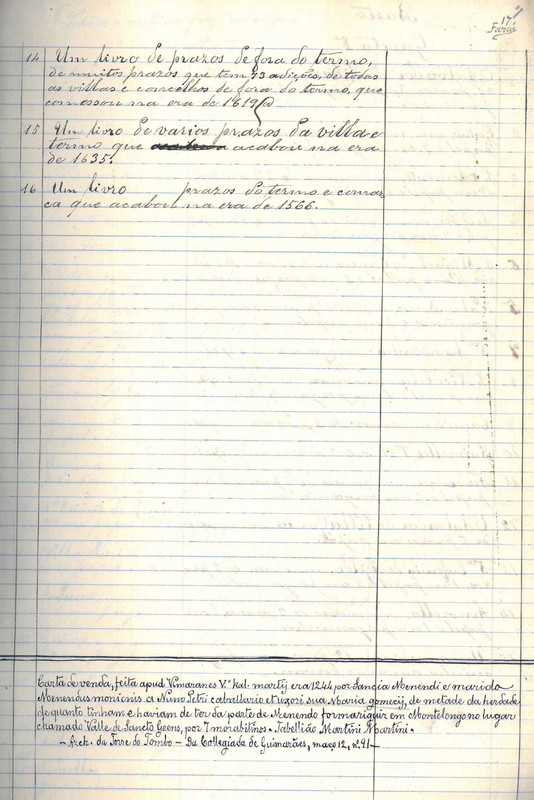 17
Faria
14 Um livro de prazos de fora do termo,
de muitos prazos que tem 73 adições, de todas
as villas e concelhos de fora do termo, que
comessou na era de 1619
15 Um livro de varios prazos da villa e
termo que acabou na era
de 1635.
16 Um livro prazos do termo e comar
ca que acabou na era de 1566.
Carta de venda, feita apud Vimaranes V.º kal. martij era 1244 por Sancia Menendi e marido
Menendus monionis a Nuno Petri caballario et uzoni sua Maria gomecij, de metade da herdade
de quanto tinham e haviam de ter da parte de Menendo formariguir em Montelongo no lugar
chamado Valle de Sancto Geens, por 7 morabitinos. Tabellião Martini Martini.
- Arch. da Torre do Tombo - Da Collegiada de Guimarães, maço 12, nº 91 -